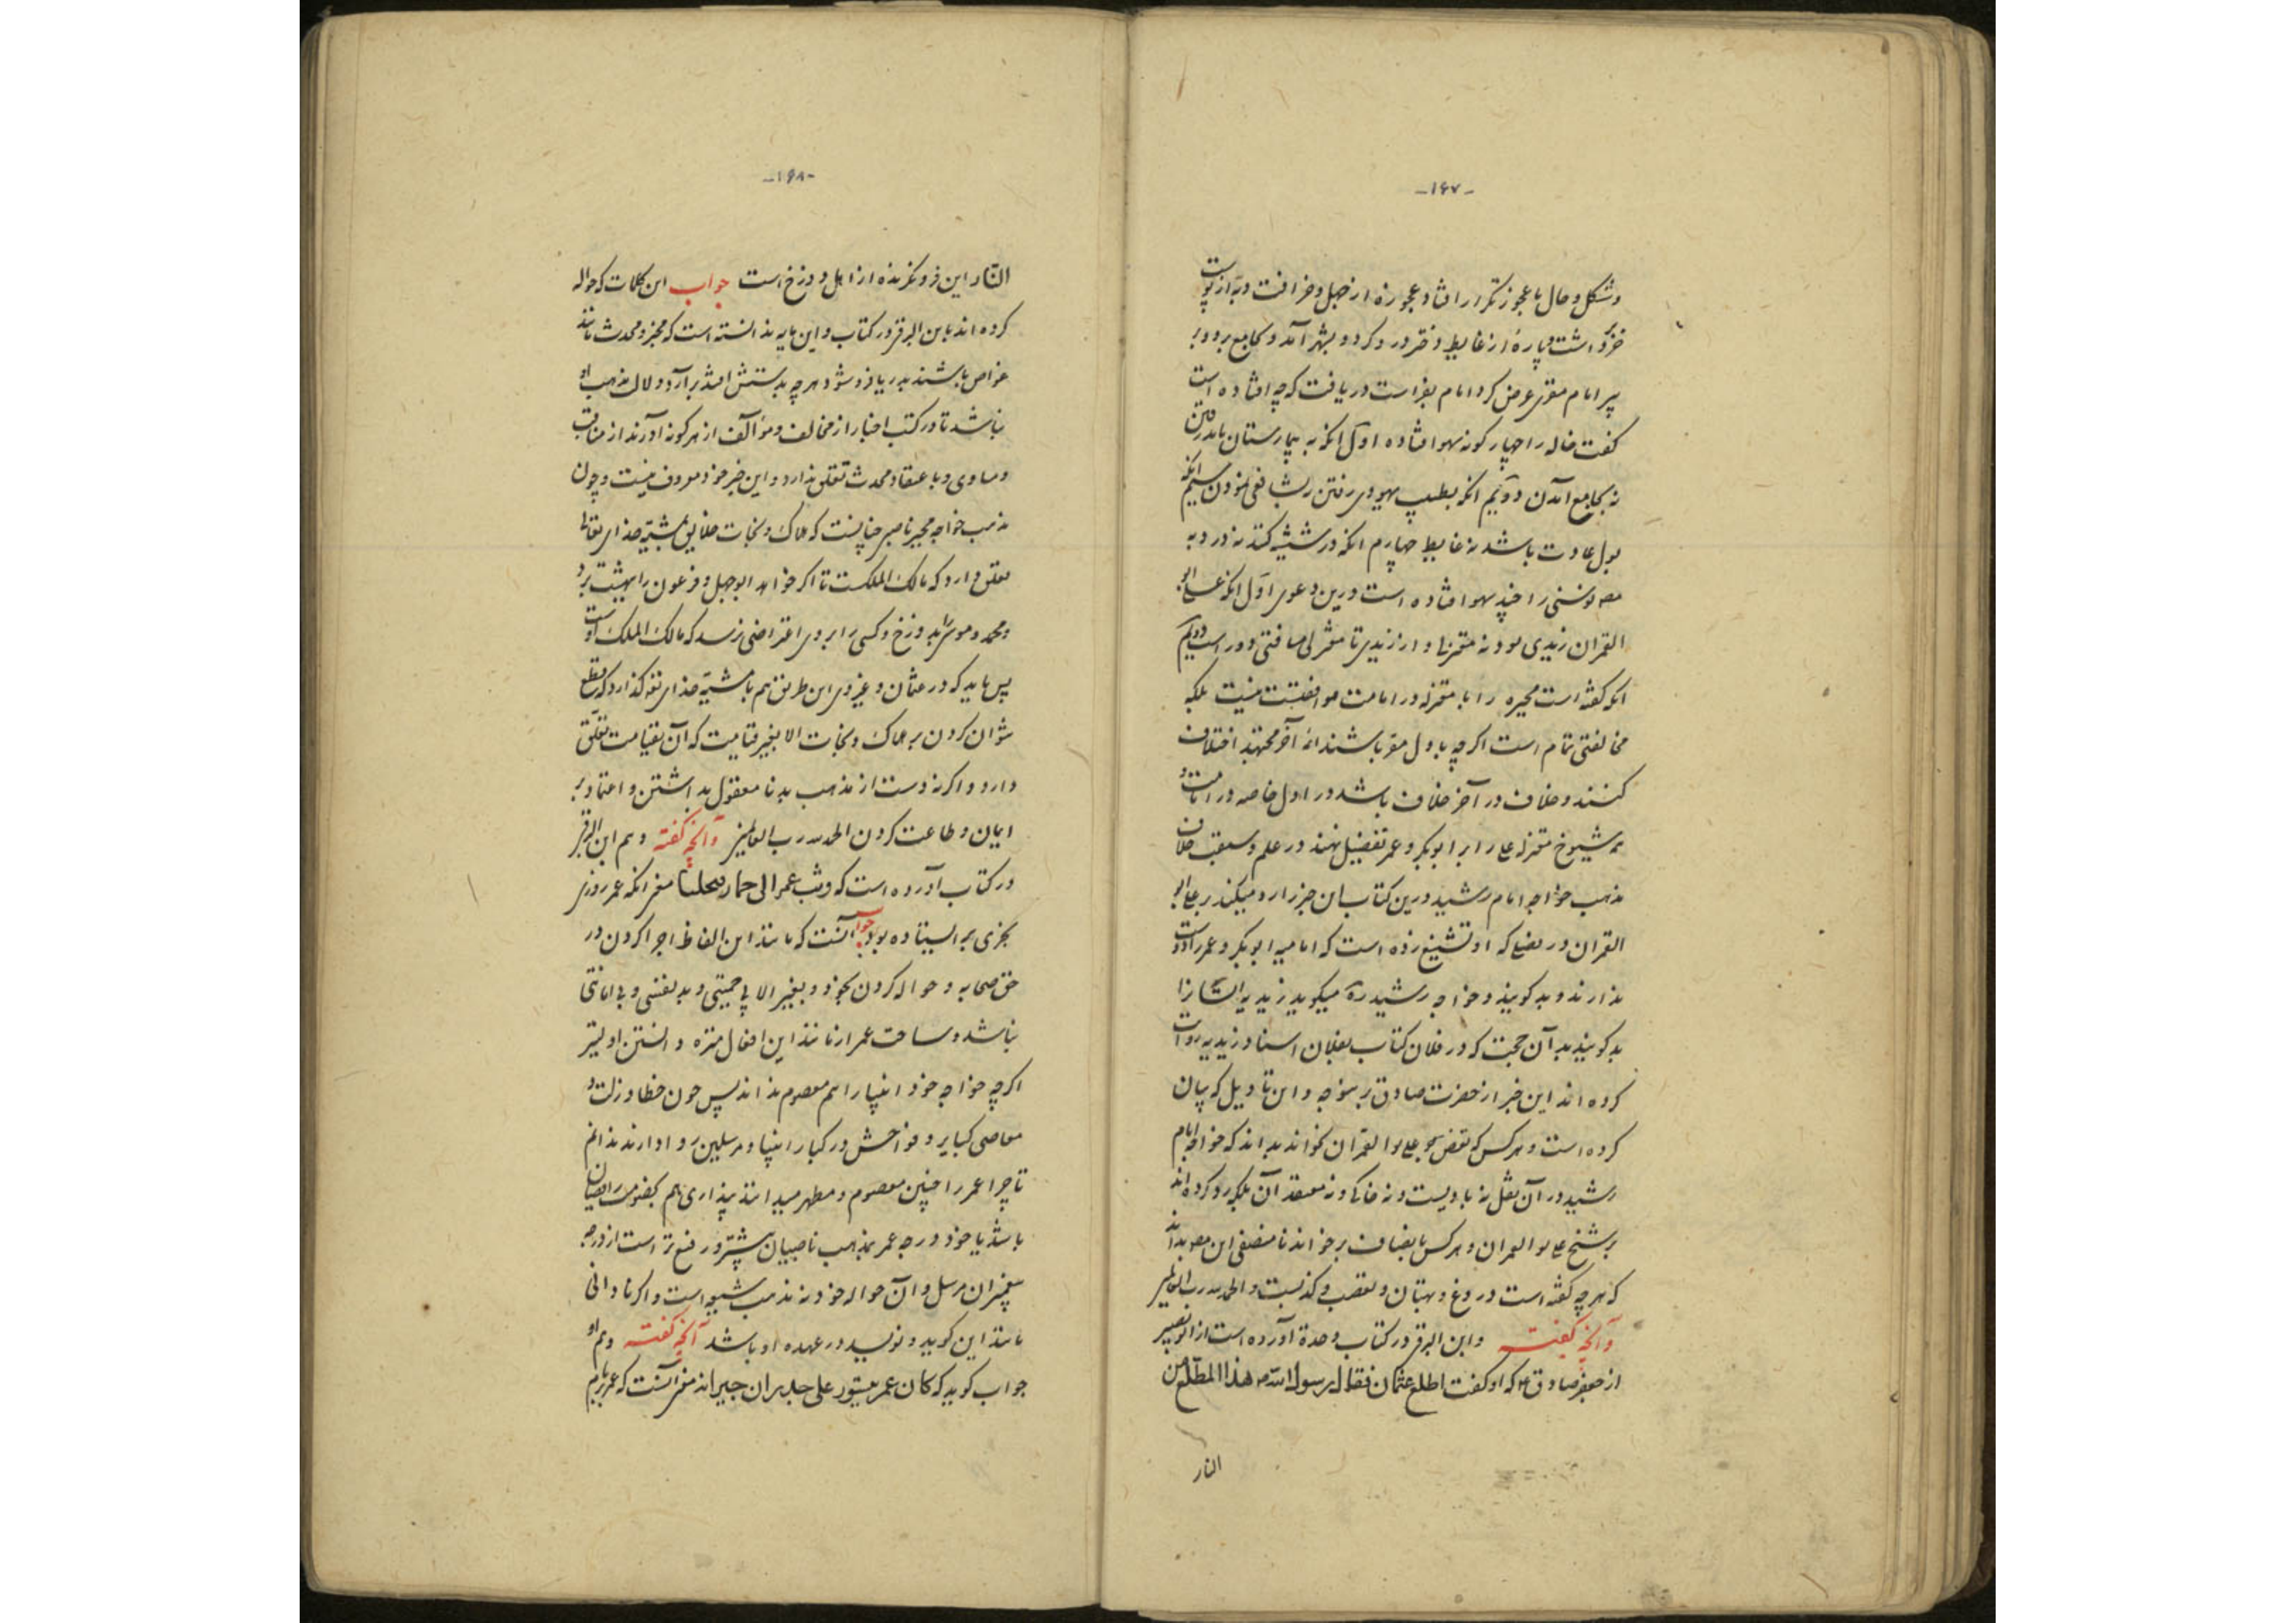 -۱۶۷-
وشکل وحال با عجوز تکرار افتاد عجوزه از جهل وخرافت دبه از پوست
خر داشت وپاره از غایط وقدر در کرد و بشهر آمد و بجامع برد و بر
پیر امام مقری عرض کرد امام بفراست دریافت که چه افتاده است
گفت خاله را چهار گونه سهو افتاده اول آنکه به بیمارستان باید رفتن
نه بجامع آمدن دویم آنکه بطبیب یهودی رفتن نه بشافعی نمودن سیم آنکه
بول عادت باشد نه غایط چهارم آنکه در شیشه کنند نه در دبه
مصنف سنی را چند سهو افتاده است درین دعوی اول آنکه علی ابو
القمران زیدی بود نه معتزلی و از زیدی تا معتزلی مسافتی دور است دویم
آنکه گفته است مجبره را با معتزله در امامت موافقتست نیست بلکه
مخالفتی تمام است اگرچه باول مقر باشند نه آخر مجتهد اختلاف
کنند وخلاف در آخر خلاف باشد در اول خاصه در امامت و
همه شیوخ معتزله علی را بر ابوبکر وعمر تفضیل نهند در علم وسبقت خلاف
مذهب خواجه امام رشید درین کتاب این خبر را رد میکند بر علی ابو
القمران در نصلی که او تشنیع زده است که امامیه ابوبکر وعمر را دوست
ندارند وبد گویند وخواجه رشید ره میگوید زیدیه ایشانرا
بد گویند بدآن حجت که در فلان کتاب بفلان اسناد زیدیه روایت
کرده اند این خبر از حضرت صادق برین وجه و این تاویل که بیان
کرده است وهرکس که نقض بر علی بوالقمران بخواند بداند که خواجه امام
رشید در آن نقل نه بادیست ونه حاکی ونه معتقد آن بلکه رد کرده اند
بر شیخ علی بوالقمران وهرکس بانصاف برخواند نا منصفی این مصنف بداند
که هرچه گفته است دروغ وبهتان وتعصب وکذبست والحمد لله رب العالمین
وآنچه گفته وابن البرقی در کتاب وحدة آورده است از ابو بصیر
از جعفر صادق ع که او گفت اطلع عثمان فقال رسول الله ص هذا المطلع من
النار
-۱۶۸-
النار این فرو نگرنده از اهل دوزخ است جواب این کلمات که حواله
کرده اند بابن البرقی در کتاب و این مایه ندانسته است که مخبر ومحدث مانند
غواص باشند بدریا فرو شود هرچه بدستش افتد برآرد ودلال مذهب او
نباشد تا در کتب اخبار از مخالف ومؤالف از هر گونه آورند از مناقب
ومساوی وباعتقاد محدث تعلق ندارد و این خبر خود معروف نیست وچون
مذهب خواجه مجبر ناصبی چنانست که هلاک ونجات خلایق بمشیة خدای تعالی
تعلق دارد که مالک الملکست تا اگر خواهد ابوجهل وفرعون را ببهشت برد
ومحمد وموسی را بدوزخ وکسی را بروی اعتراضی نرسد که مالک الملک اوست
پس باید که در عثمان وغیر وی این طریق هم با مشیة خدای تعه گذارد که قطع
نتوان کردن بر هلاک ونجات الا بغیر قیامت که آن بقیامت تعلق
دارد و اگر نه دست از مذهب بد نا معقول بداشتن واعتماد بر
ایمان وطاعت کردن الحمد لله رب العالمین وآنچه گفته وهم ابن البرقی
در کتاب آورده است که وثب عمر الی حمار معنی آنکه عمر روزی
بخری بر ایستاده بود جواب آنست که مانند این الفاظ اجرا کردن در
حق صحابه وحواله کردن بخود وبغیر الا بی حمیتی وبد نفسی وبی امانتی
نباشد وساحت عمر از مانند این افعال منزه دانستن اولیتر
اگرچه خواجه خود انبیا را هم معصوم نداند پس چون خطا وزلت و
معاصی کبایر وفواحش در کبار انبیا ومرسلین روا دارند ندانم
تا چرا عمر را چنین معصوم ومطهر میدانند پنداری هم بفتوی رافضیان
باشد یا خود درجه عمر بمذهب ناصبیان بیشتر ورفیع تر است از درجه
پیغمبران مرسل و آن حواله خود نه مذهب شیعه است و اگر نادانی
مانند این گوید ونویسد در عهده او باشد آنچه گفته وهم او
جواب گوید که کان عمر یتسور علی جدران جیرانه معنی آنست که عمر بر بام